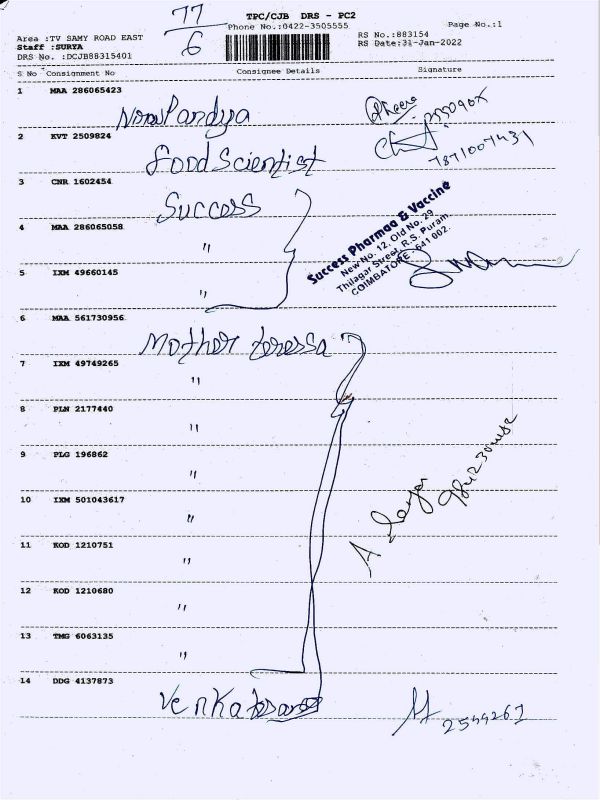 77
6
TPC/CJB DRS - PC2
Phone No.:0422-3505555
Page No.:1
Area :TV SAMY ROAD EAST
Staff :SURYA
DRS No. :DCJB88315401
RS No.:883154
RS Date:31-Jan-2022
S No Consignment No Consignee Details Signature
1 MAA 286065423
NoowPandya
2 KVT 2509824
food Scientist
7871007431
3 CNR 1602454
Success
4 MAA 286065058 "
5 IXM 49660145 "
Success Pharmaa & Vaccine
New No. 12, Old No. 29
Thilagar Street, R.S. Puram
COIMBATORE - 641 002.
6 MAA 561730956
Mother teressa
7 IXM 49749265 "
8 PLN 2177440 "
9 PLG 196862 "
10 IXM 501043617 "
11 KOD 1210751 "
12 KOD 1210680 "
13 TMG 6063135 "
14 DDG 4137873